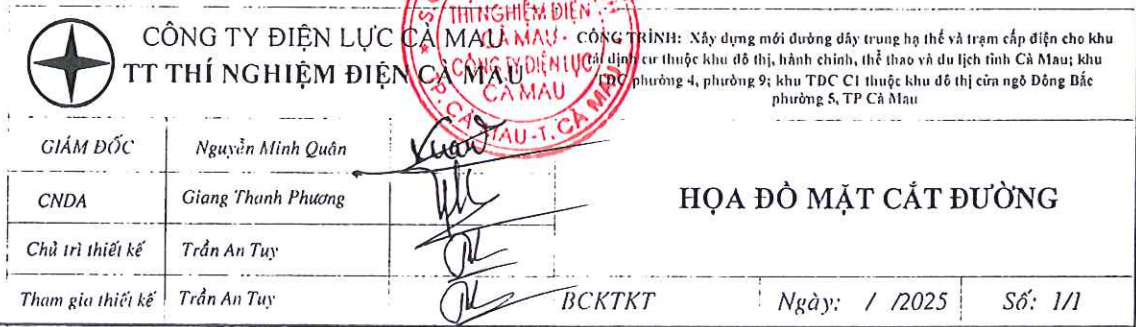 CÔNG TY ĐIỆN LỰC CÀ MAU
TT THÍ NGHIỆM ĐIỆN CÀ MAU
THÍ NGHIỆM ĐIỆN
CÀ MAU -
CÔNG TY ĐIỆN LỰC
CÀ MAU
TP. CÀ MAU - T. CÀ MAU
CÔNG TRÌNH: Xây dựng mới đường dây trung hạ thế và trạm cấp điện cho khu
tái định cư thuộc khu đô thị, hành chính, thể thao và du lịch tỉnh Cà Mau; khu
TDC phường 4, phường 9; khu TDC C1 thuộc khu đô thị cửa ngõ Đông Bắc
phường 5, TP Cà Mau
GIÁM ĐỐC Nguyễn Minh Quân
CNDA Giang Thanh Phương
Chủ trì thiết kế Trần An Tuy
Tham gia thiết kế Trần An Tuy
HỌA ĐỒ MẶT CẮT ĐƯỜNG
BCKTKT Ngày: / /2025 Số: 1/1